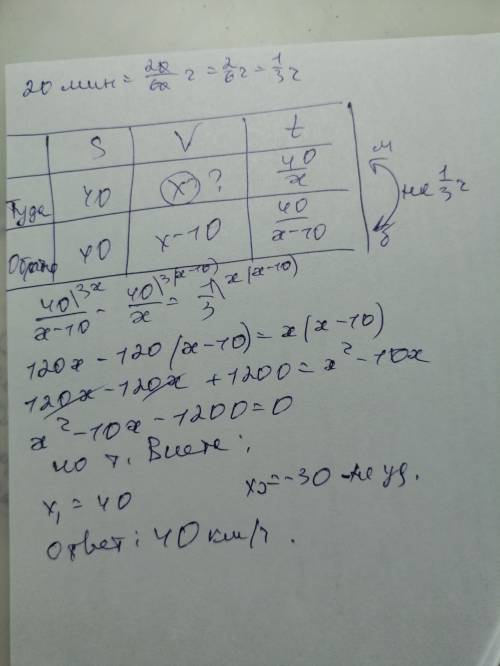 20 мин = 20/60 ч = 2/6 ч = 1/3 ч
S V t
Туда 40 x ? 40/x м
на 1/3 ч
Обратно 40 x-10 40/(x-10) б
40/(x-10) \3x - 40/x \3(x-10) = 1/3 \x(x-10)
120x - 120(x-10) = x(x-10)
120x - 120x + 1200 = x² - 10x
x² - 10x - 1200 = 0
по т. Виета:
x₁ = 40 x₂ = -30 - не уд.
ответ: 40 км/ч.